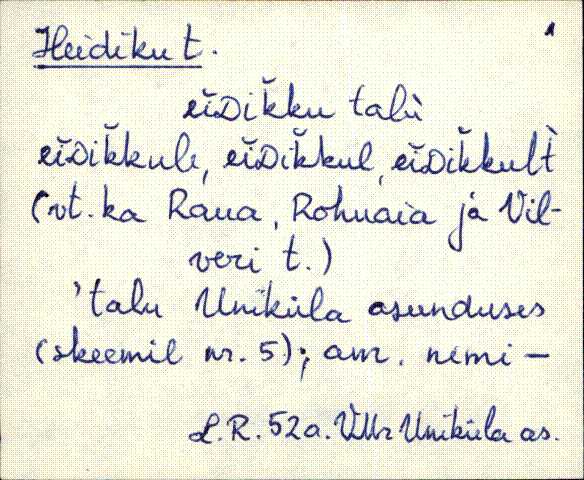 1
Heidiku t.
eĭᴅik̆ku talù
eĭᴅik̆kule, eĭᴅik̆kul, eĭᴅik̆kult̀
(vt. ka Raua, Rohuaia ja Vil-
veri t.)
'talu Uniküla asunduses
(skeemil nr. 5); amr. nimi –
L.R. 52a. VMr Uniküla as.